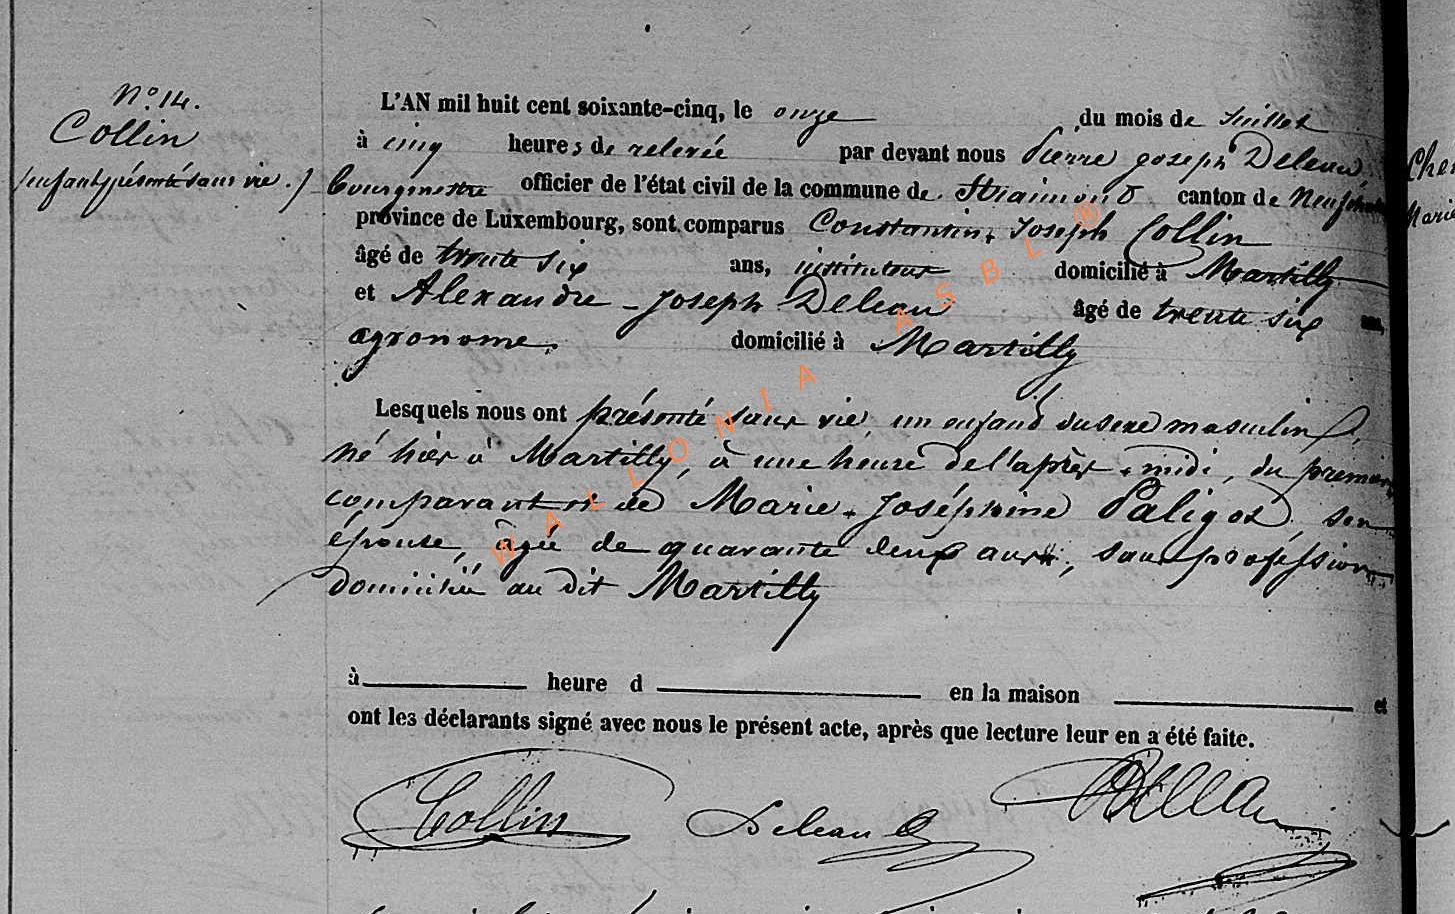 N° 14.
Collin
(enfant présenté sans vie.)
L'AN mil huit cent soixante-cinq, le onze du mois de Juillet
à cinq heures de relevée par devant nous Pierre Joseph Deleau
bourgmestre officier de l'état civil de la commune de Straimont canton de Neufchâteau
province de Luxembourg, sont comparus Constantin-Joseph Collin
âgé de trente six ans, instituteur domicilié à Martilly
et Alexandre-Joseph Deleau âgé de trente six ans,
agronome, domicilié à Martilly
Lesquels nous ont présenté sans vie un enfant du sexe masculin,
né hier à Martilly, à une heure de l'après-midi, du premier
comparant et de Marie-Joséphine Paligot son
épouse, agée de quarante deux ans, sans profession
domiciliée au dit Martilly
à heure d en la maison et
ont les déclarants signé avec nous le présent acte, après que lecture leur en a été faite.
Collin Deleau Deleau
WALLONIA ASBL ®
Marie